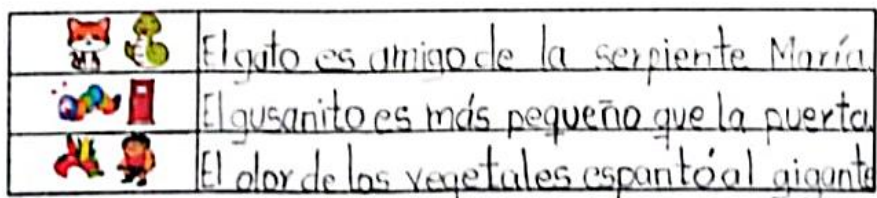 El gato es amigo de la serpiente María.
El gusanito es más pequeño que la puerta.
El olor de los vegetales espantó al gigante